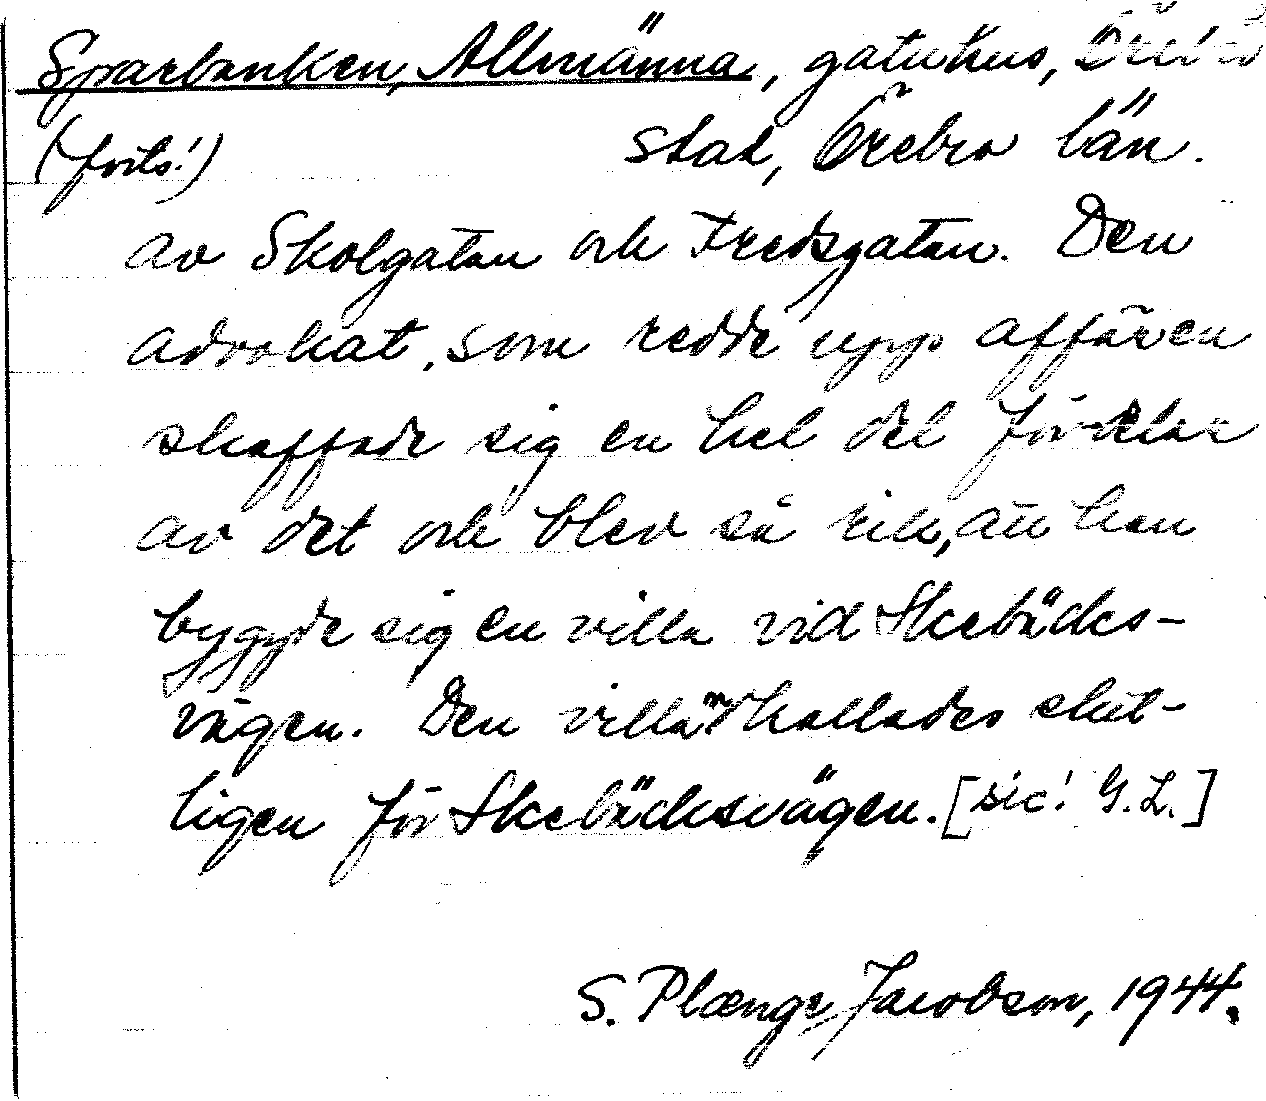 Sparbanken, Allmänna, gatuhus, Örebro
(forts!) stad, Örebro län.
av Skolgatan och Fredsgatan. Den
advokat, som redde upp affären
skaffade sig en hel del fördelar
av det och blev så rik, att han
byggde sig en villa vid Skebäcks-
vägen. Den villan kallades slut-
ligen för Skebäcksvägen. [sic! G.L.]
S. Plænge Jacobson, 1944.